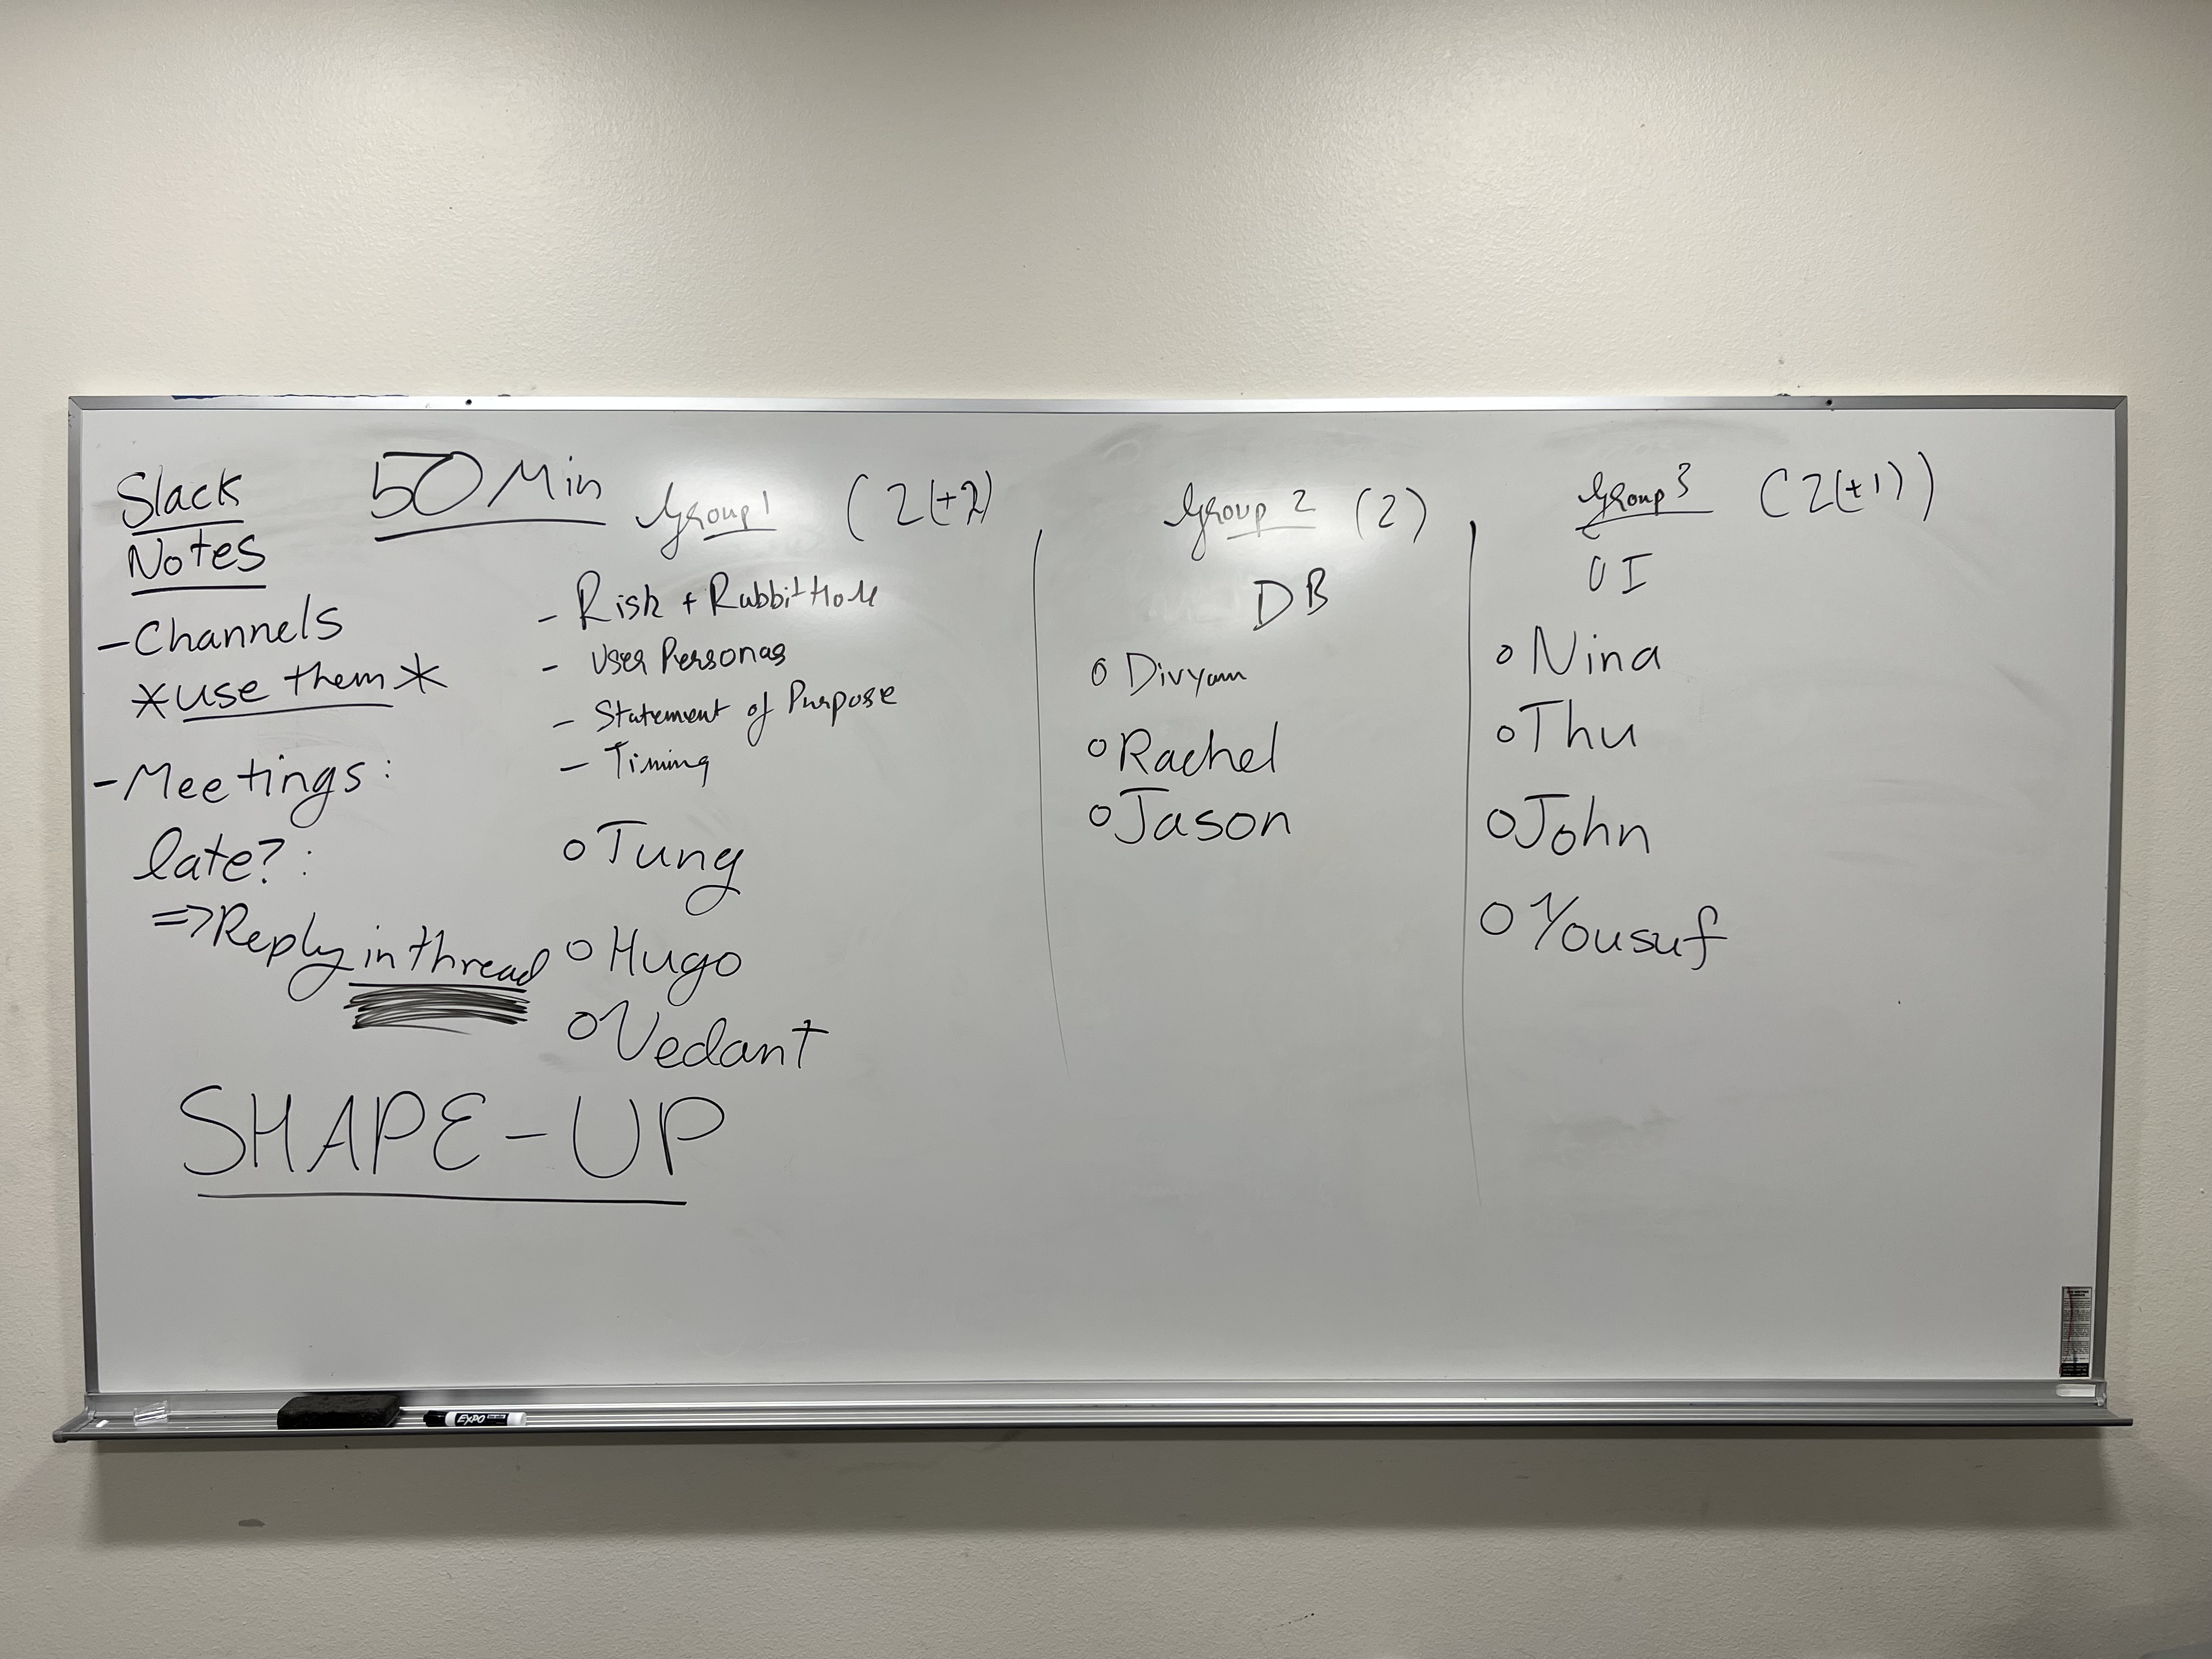 Slack
Notes
- Channels
*use them*
- Meetings:
late?:
=> Reply in thread
SHAPE-UP
50 Min
Group 1 (2(+2)
- Risk + Rabbit Hole
- User Personas
- Statement of Purpose
- Timing
o Tung
o Hugo
o Vedant
Group 2 (2)
DB
o Divyam
o Rachel
o Jason
Group 3 (2(+1))
UI
o Nina
o Thu
o John
o Yousuf
EXPO